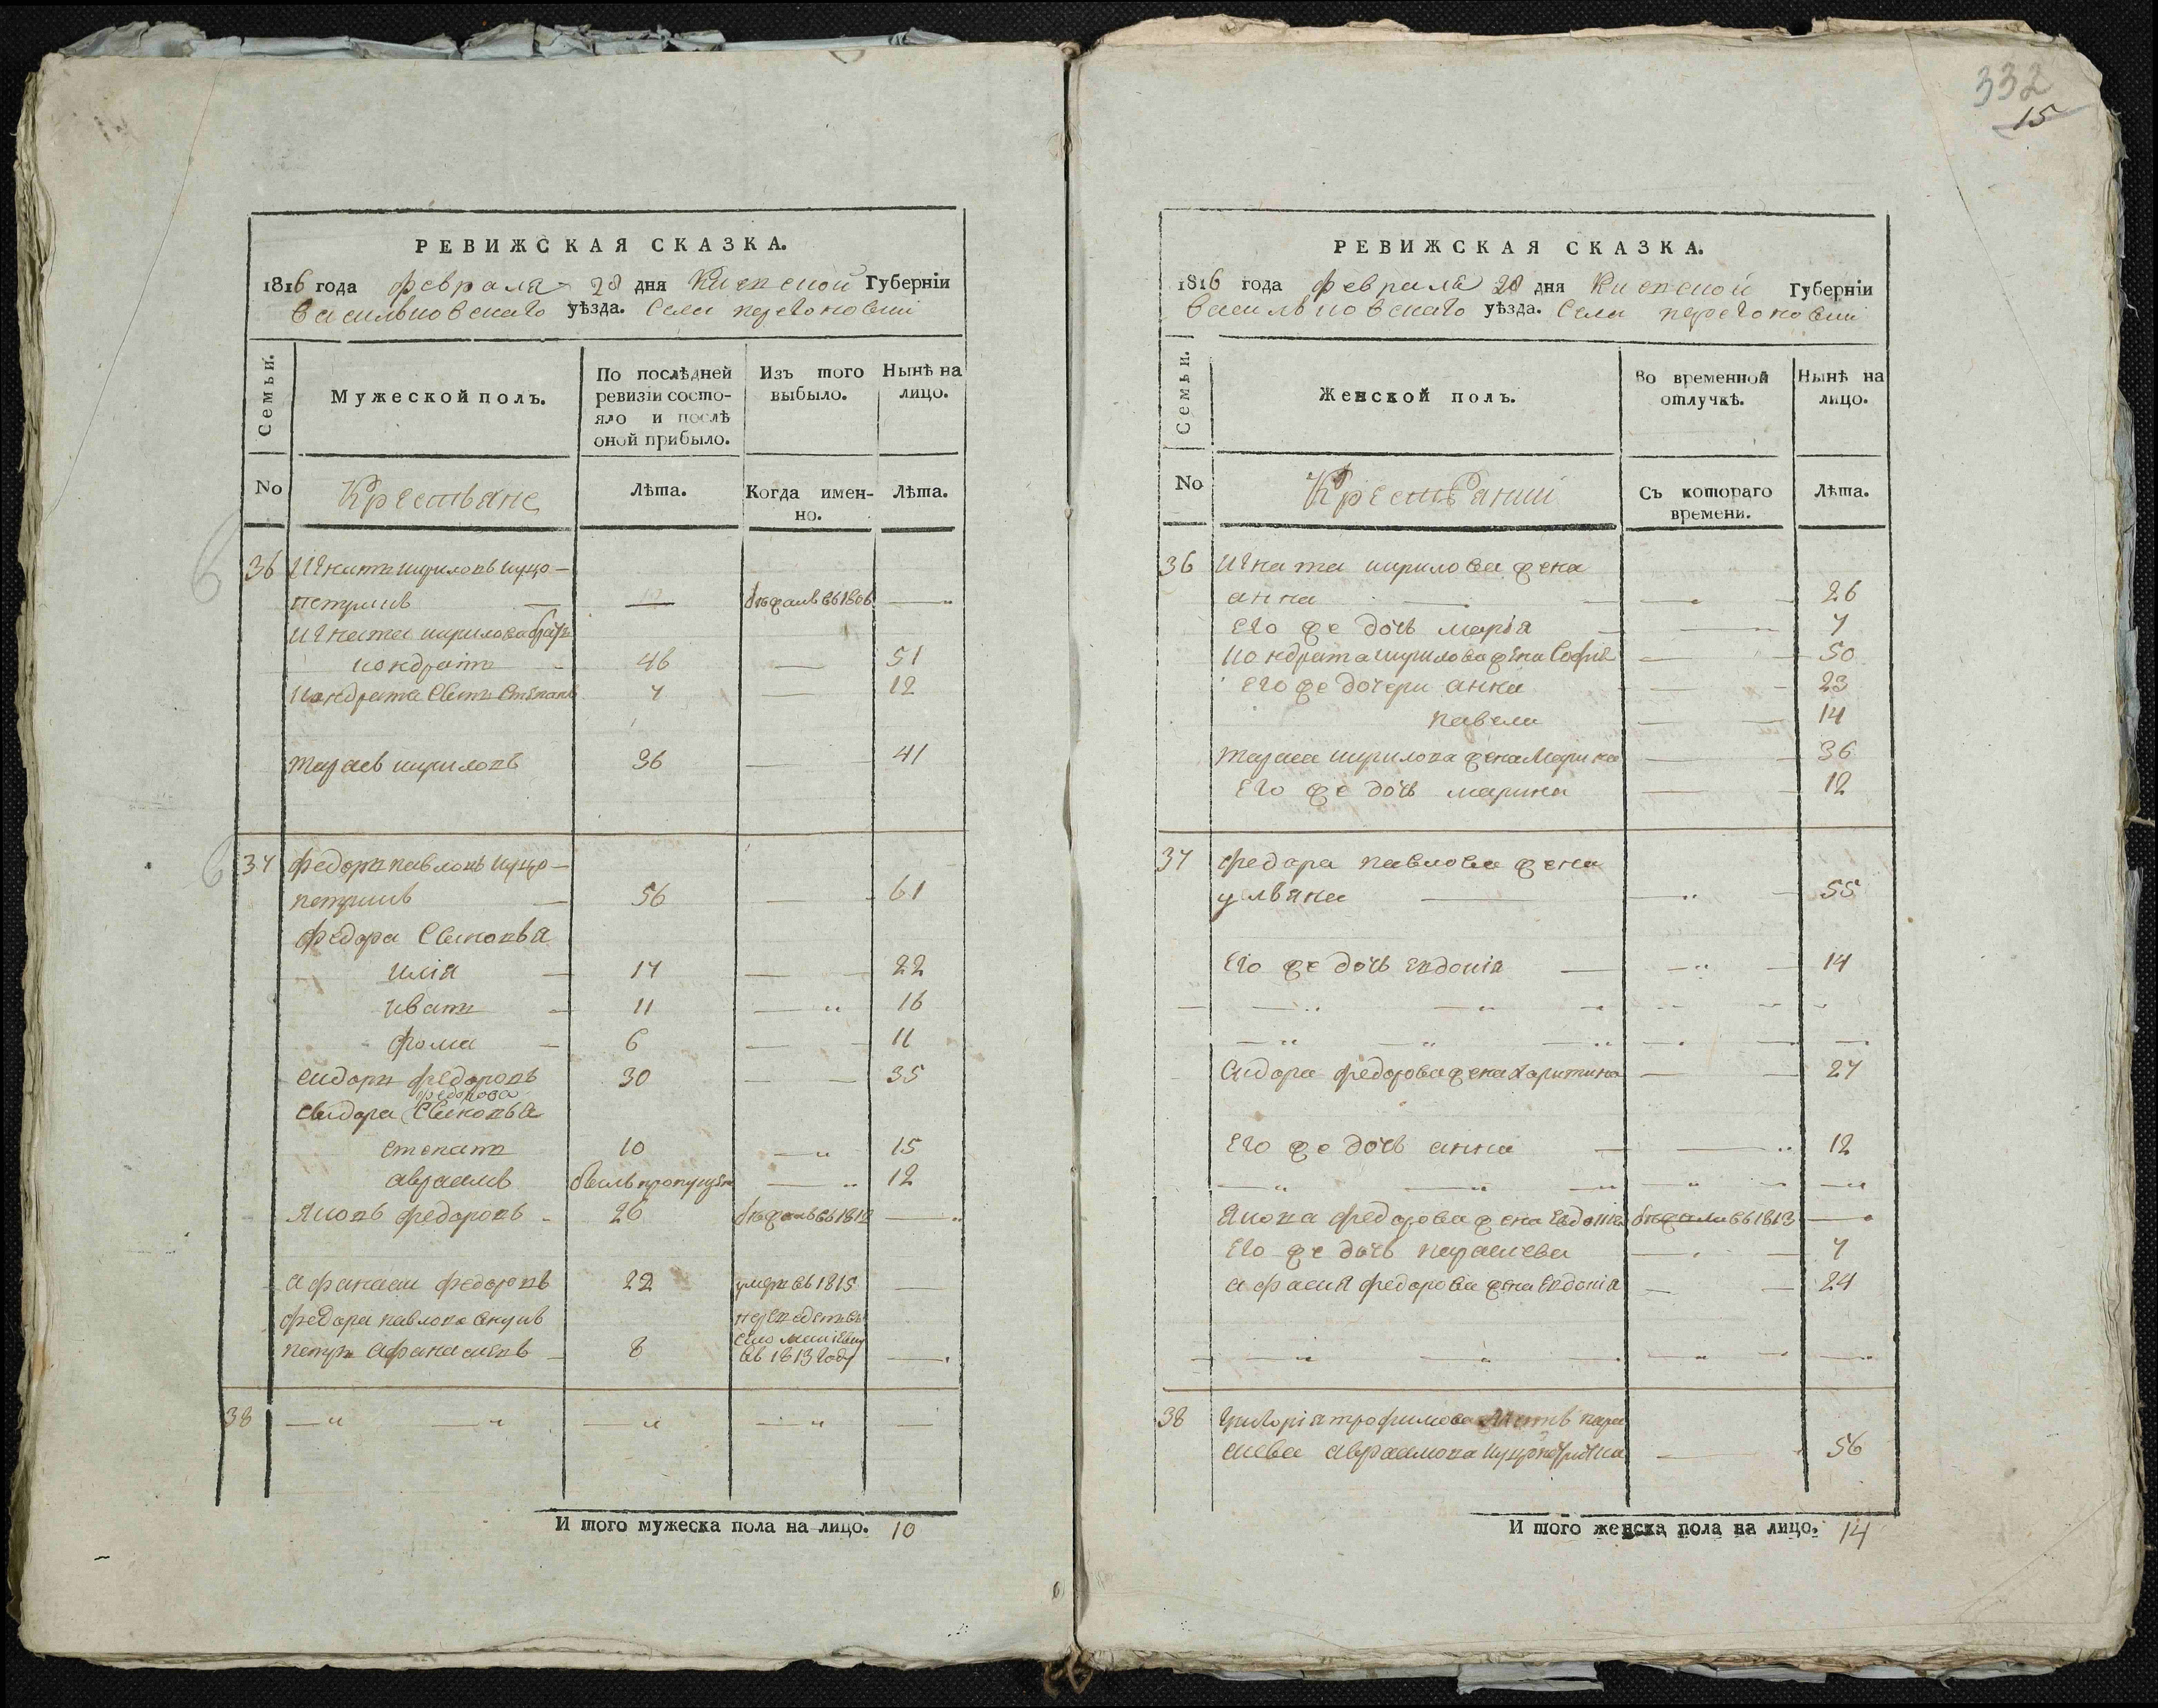 332
15
РЕВИЖСКАЯ СКАЗКА.
1816 года февраля 28 дня Киевской Губерніи
васильковскаго уѣзда. Села перегоновки
Семьи.
Мужеской полъ.
По послѣдней ревизіи состояло и послѣ оной прибыло.
Изъ того выбыло.
Нынѣ на лицо.
No
Крестьяне
Лѣта.
Когда именно.
Лѣта.
36 Игнатъ кириловъ куцо-
петрикъ — — бѣжалъ въ 1806 —
Игната кирилова братъ
кондратъ 46 — 51
кондрата Сынъ Степанъ 7 — 12
тарасъ кириловъ 36 — 41
37 федоръ павловъ куцо-
петрикъ 56 — 61
федора Сыновья
илія 17 — 22
иванъ 11 — 16
фома 6 — 11
сидоръ федоровъ 30 — 35
федорова
сидора Сыновья
степанъ 10 — 15
авраамъ былъ пропущен — 12
Яковъ федоровъ 26 бѣжалъ въ 1812 —
афанасій федоровъ 22 умеръ въ 1815 —
федора павлова внукъ переведенъ въ
петръ афанасіевъ 8 село
въ 1813 году —
38 — — — —
И того мужеска пола на лицо. 10
РЕВИЖСКАЯ СКАЗКА.
1816 года февраля 28 дня Киевской Губерніи
васильковскаго уѣзда. Села перегоновки
Семьи.
Женской полъ.
Во временной отлучкѣ.
Нынѣ на лицо.
No
Крестьянки
Съ котораго времени.
Лѣта.
36 Игната кирилова жена
анна — 26
Его же дочь марія — 7
кондрата кирилова жена Софія — 50
Его же дочери анна — 23
павла — 14
тараса кирилова жена Марина — 36
Его же дочь марина — 12
37 федора павлова жена
ульяна — 55
Его же дочь евдокія — 14
Сидора федорова жена Харитина — 27
Его же дочь анна — 12
Якова федорова жена Евдокія бѣжала въ 1813 —
Его же дочь параскева — 7
афанасія федорова жена Евдокія — 24
38 григорія трофимова мать пара
скева авраамова куцопетрикова — 56
И того женска пола на лицо. 14